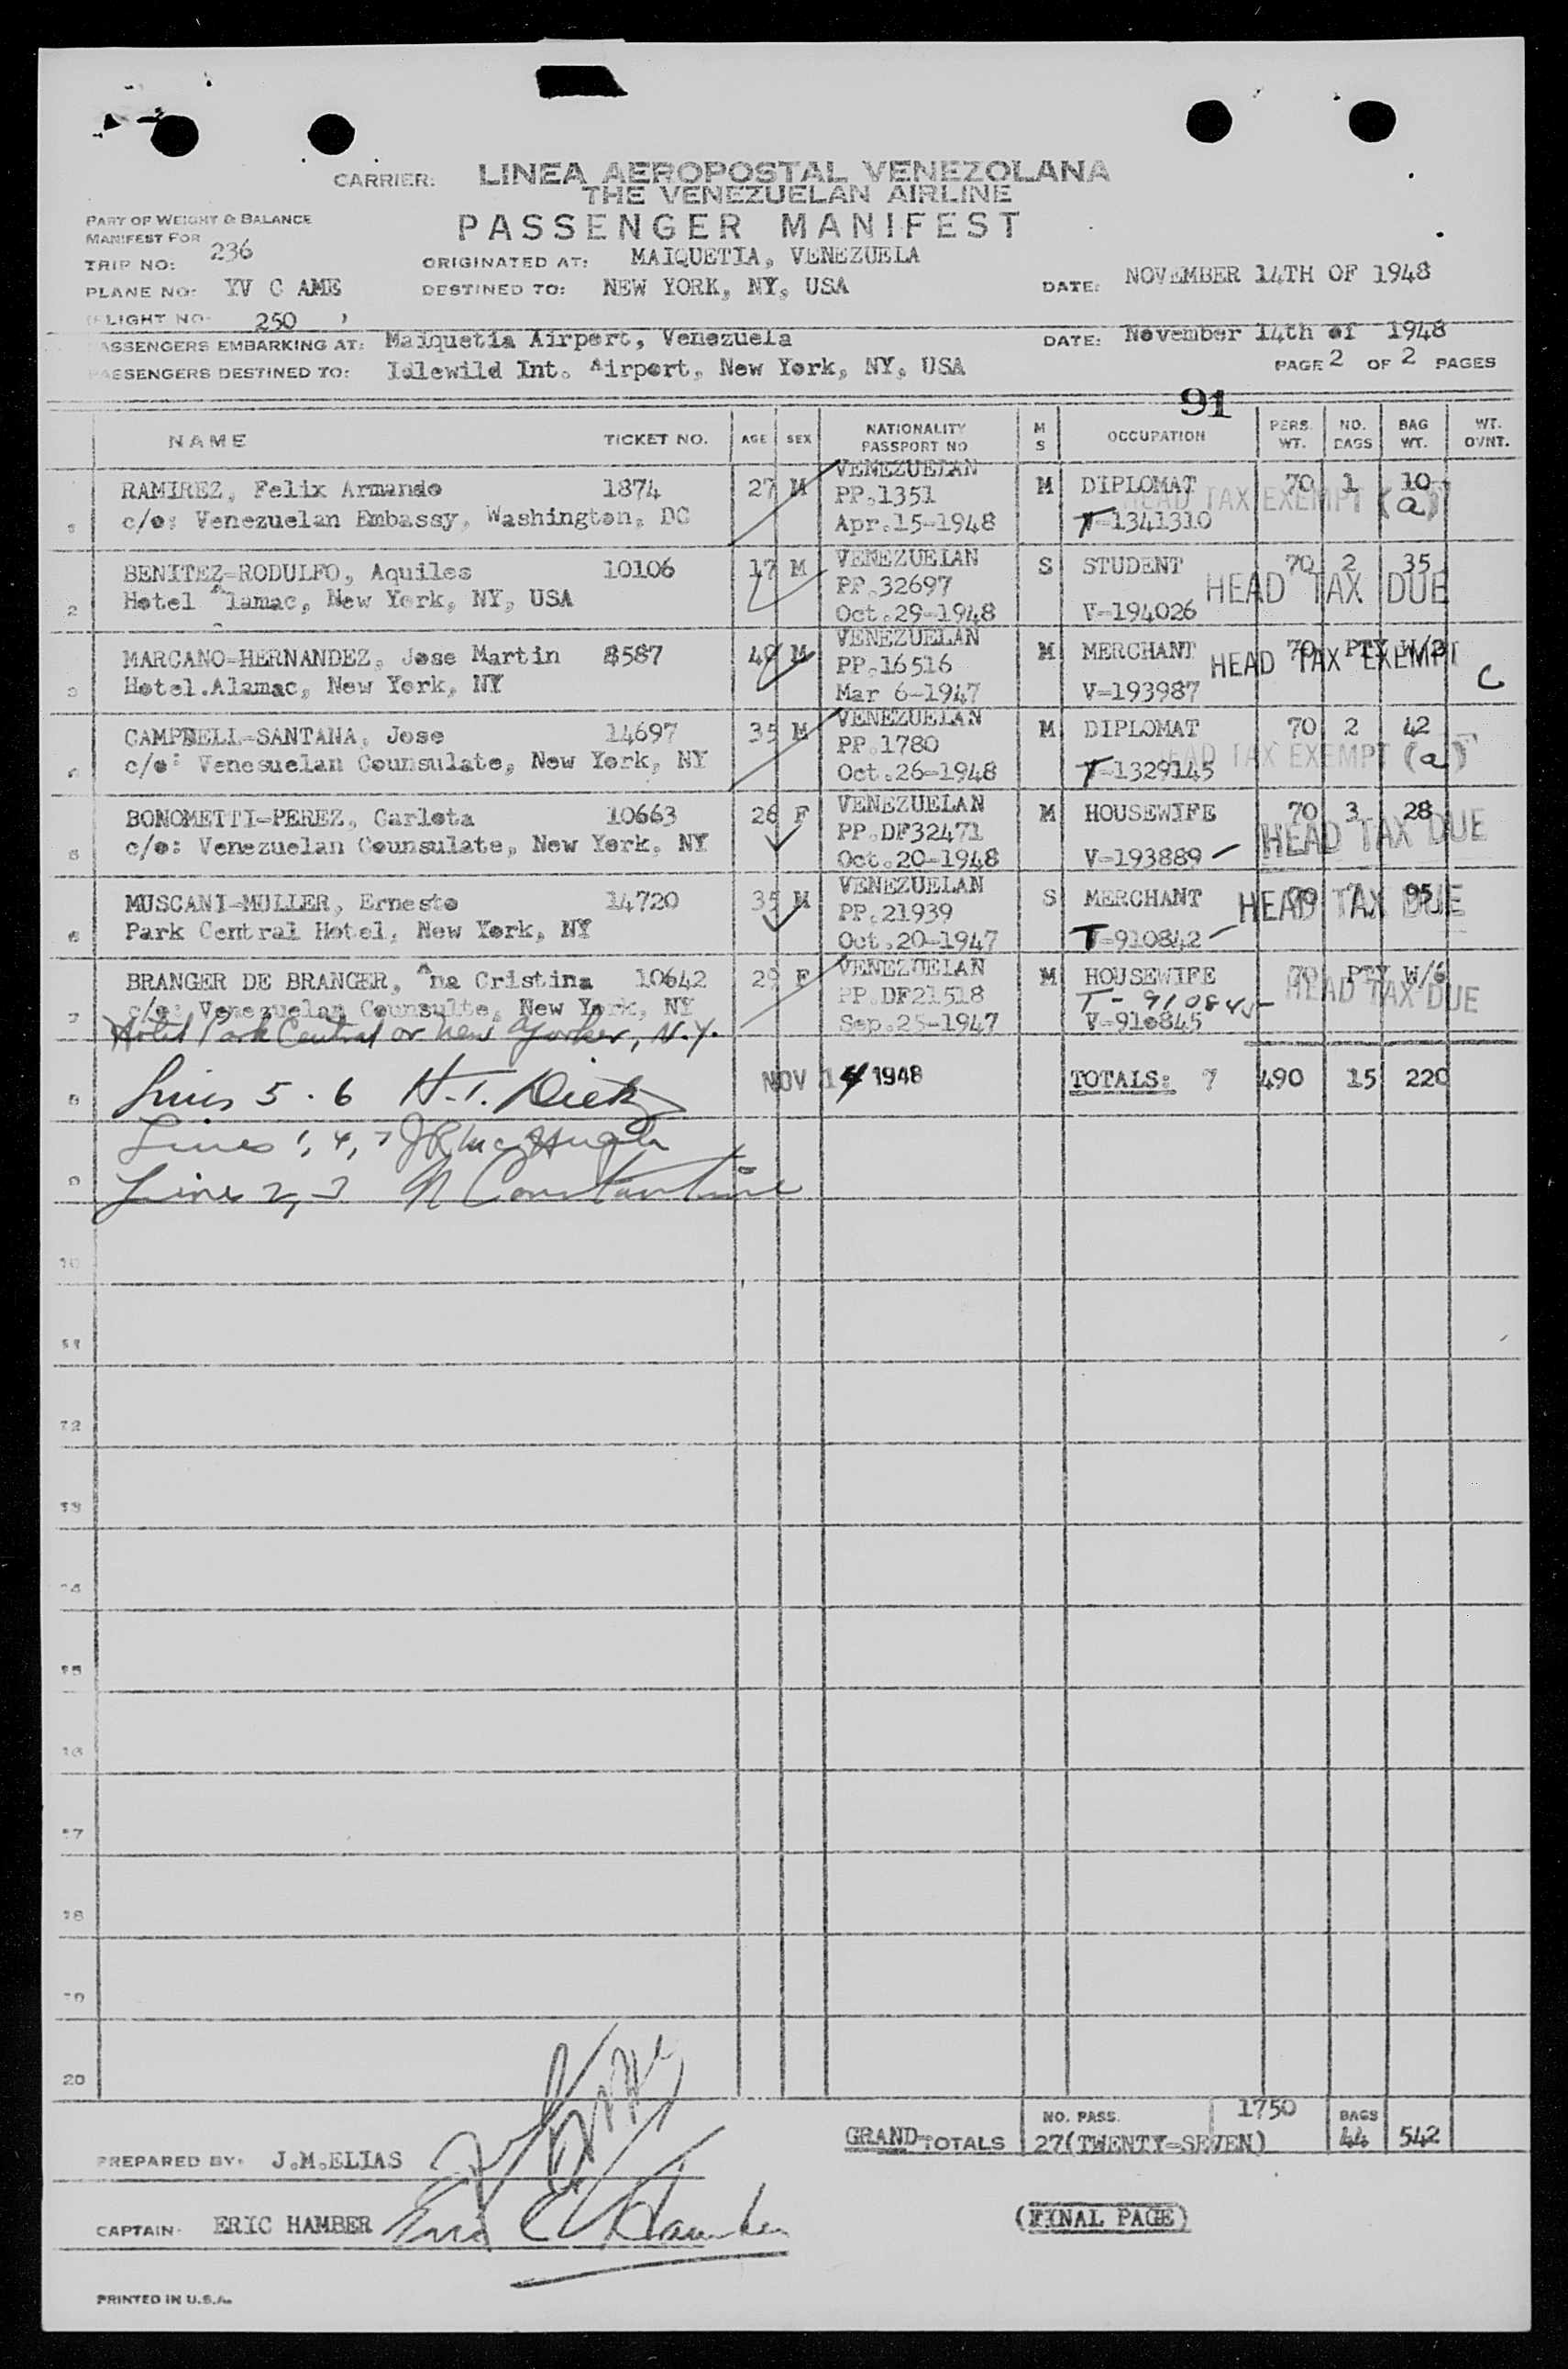 CARRIER: LINEA AEROPOSTAL VENEZOLANA
THE VENEZUELAN AIRLINE
PASSENGER MANIFEST
PART OF WEIGHT & BALANCE
MANIFEST FOR
TRIP NO: 236
ORIGINATED AT: MAIQUETIA, VENEZUELA
PLANE NO: YV C AME
DESTINED TO: NEW YORK, NY, USA
DATE: NOVEMBER 14TH OF 1948
(FLIGHT NO. 250 )
PASSENGERS EMBARKING AT: Maiquetia Airport, Venezuela
DATE: November 14th of 1948
PASSENGERS DESTINED TO: Idlewild Int. Airport, New York, NY, USA
PAGE 2 OF 2 PAGES
91
NAME TICKET NO. AGE SEX NATIONALITY PASSPORT NO M S OCCUPATION PERS. WT. NO. BAGS BAG WT. WT. OVNT.
1 RAMIREZ, Felix Armando 1874 27 M VENEZUELAN M DIPLOMAT 70 1 10
PP.1351 HEAD TAX EXEMPT (a)
c/o: Venezuelan Embassy, Washington, DC Apr.15-1948 T-1341310
2 BENITEZ-RODULFO, Aquiles 10106 17 M VENEZUELAN S STUDENT 70 2 35
PP.32697 HEAD TAX DUE
Hotel Alamac, New York, NY, USA Oct.29-1948 V-194026
3 MARCANO-HERNANDEZ, Jose Martin 8587 49 M VENEZUELAN M MERCHANT 70 PTY W/2
PP.16516 HEAD TAX EXEMPT C
Hotel.Alamac, New York, NY Mar 6-1947 V-193987
4 CAMPBELL-SANTANA, Jose 14697 35 M VENEZUELAN M DIPLOMAT 70 2 42
PP.1780 HEAD TAX EXEMPT (a)
c/o: Venesuelan Counsulate, New York, NY Oct.26-1948 T-1329145
5 BONOMETTI-PEREZ, Carlota 10663 26 F VENEZUELAN M HOUSEWIFE 70 3 28
PP.DF32471 HEAD TAX DUE
c/o: Venezuelan Counsulate, New York, NY Oct.20-1948 V-193889
6 MUSCANI-MULLER, Ernesto 14720 35 M VENEZUELAN S MERCHANT 70 7 95
PP.21939 HEAD TAX DUE
Park Central Hotel, New York, NY Oct.20-1947 T-910842
7 BRANGER DE BRANGER, Ana Cristina 10642 29 F VENEZUELAN M HOUSEWIFE 70 PTY W/6
c/o: Venezuelan Counsulte, New York, NY PP.DF21518 T-910845 HEAD TAX DUE
Hotel Park Central or New Yorker, N.Y. Sep.25-1947 V-910845
8 Lines 5 . 6 H.T. Dietz NOV 14 1948 TOTALS: 7 490 15 220
Lines 1, 4, 7 J R McHugh
9 Line 2, 3 N Constantine
10
11
12
13
14
15
16
17
18
19
20
GRAND TOTALS NO. PASS. 27(TWENTY-SEVEN) 1750 BAGS 44 542
PREPARED BY: J.M.ELIAS
CAPTAIN: ERIC HAMBER Eric E Hamber
(FINAL PAGE)
PRINTED IN U.S.A.